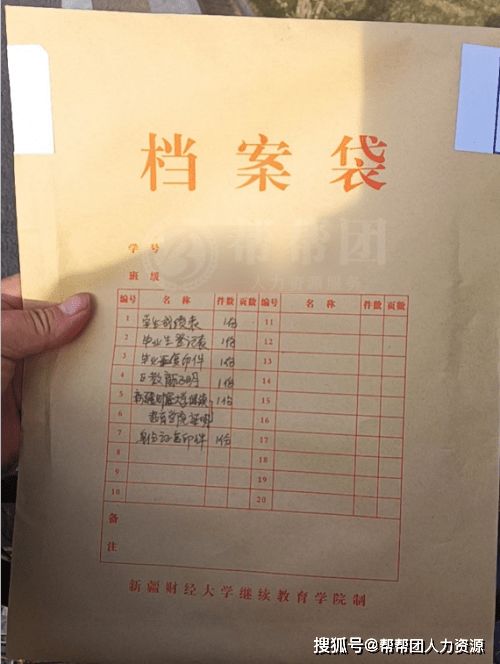 档案袋
帮帮团
人力资源服务
学号
班级
编号 名称 件数 页数 编号 名称 件数 页数
1 学生成绩表 1份 11
2 毕业生登记表 1份 12
3 毕业证复印件 1份 13
4 1份 14
5 新疆财经大学继续 1份 15
6 教育学院证明 16
7 身份证复印件 1份 17
8 18
9 19
10 20
备注
新疆财经大学继续教育学院制
搜狐号@帮帮团人力资源